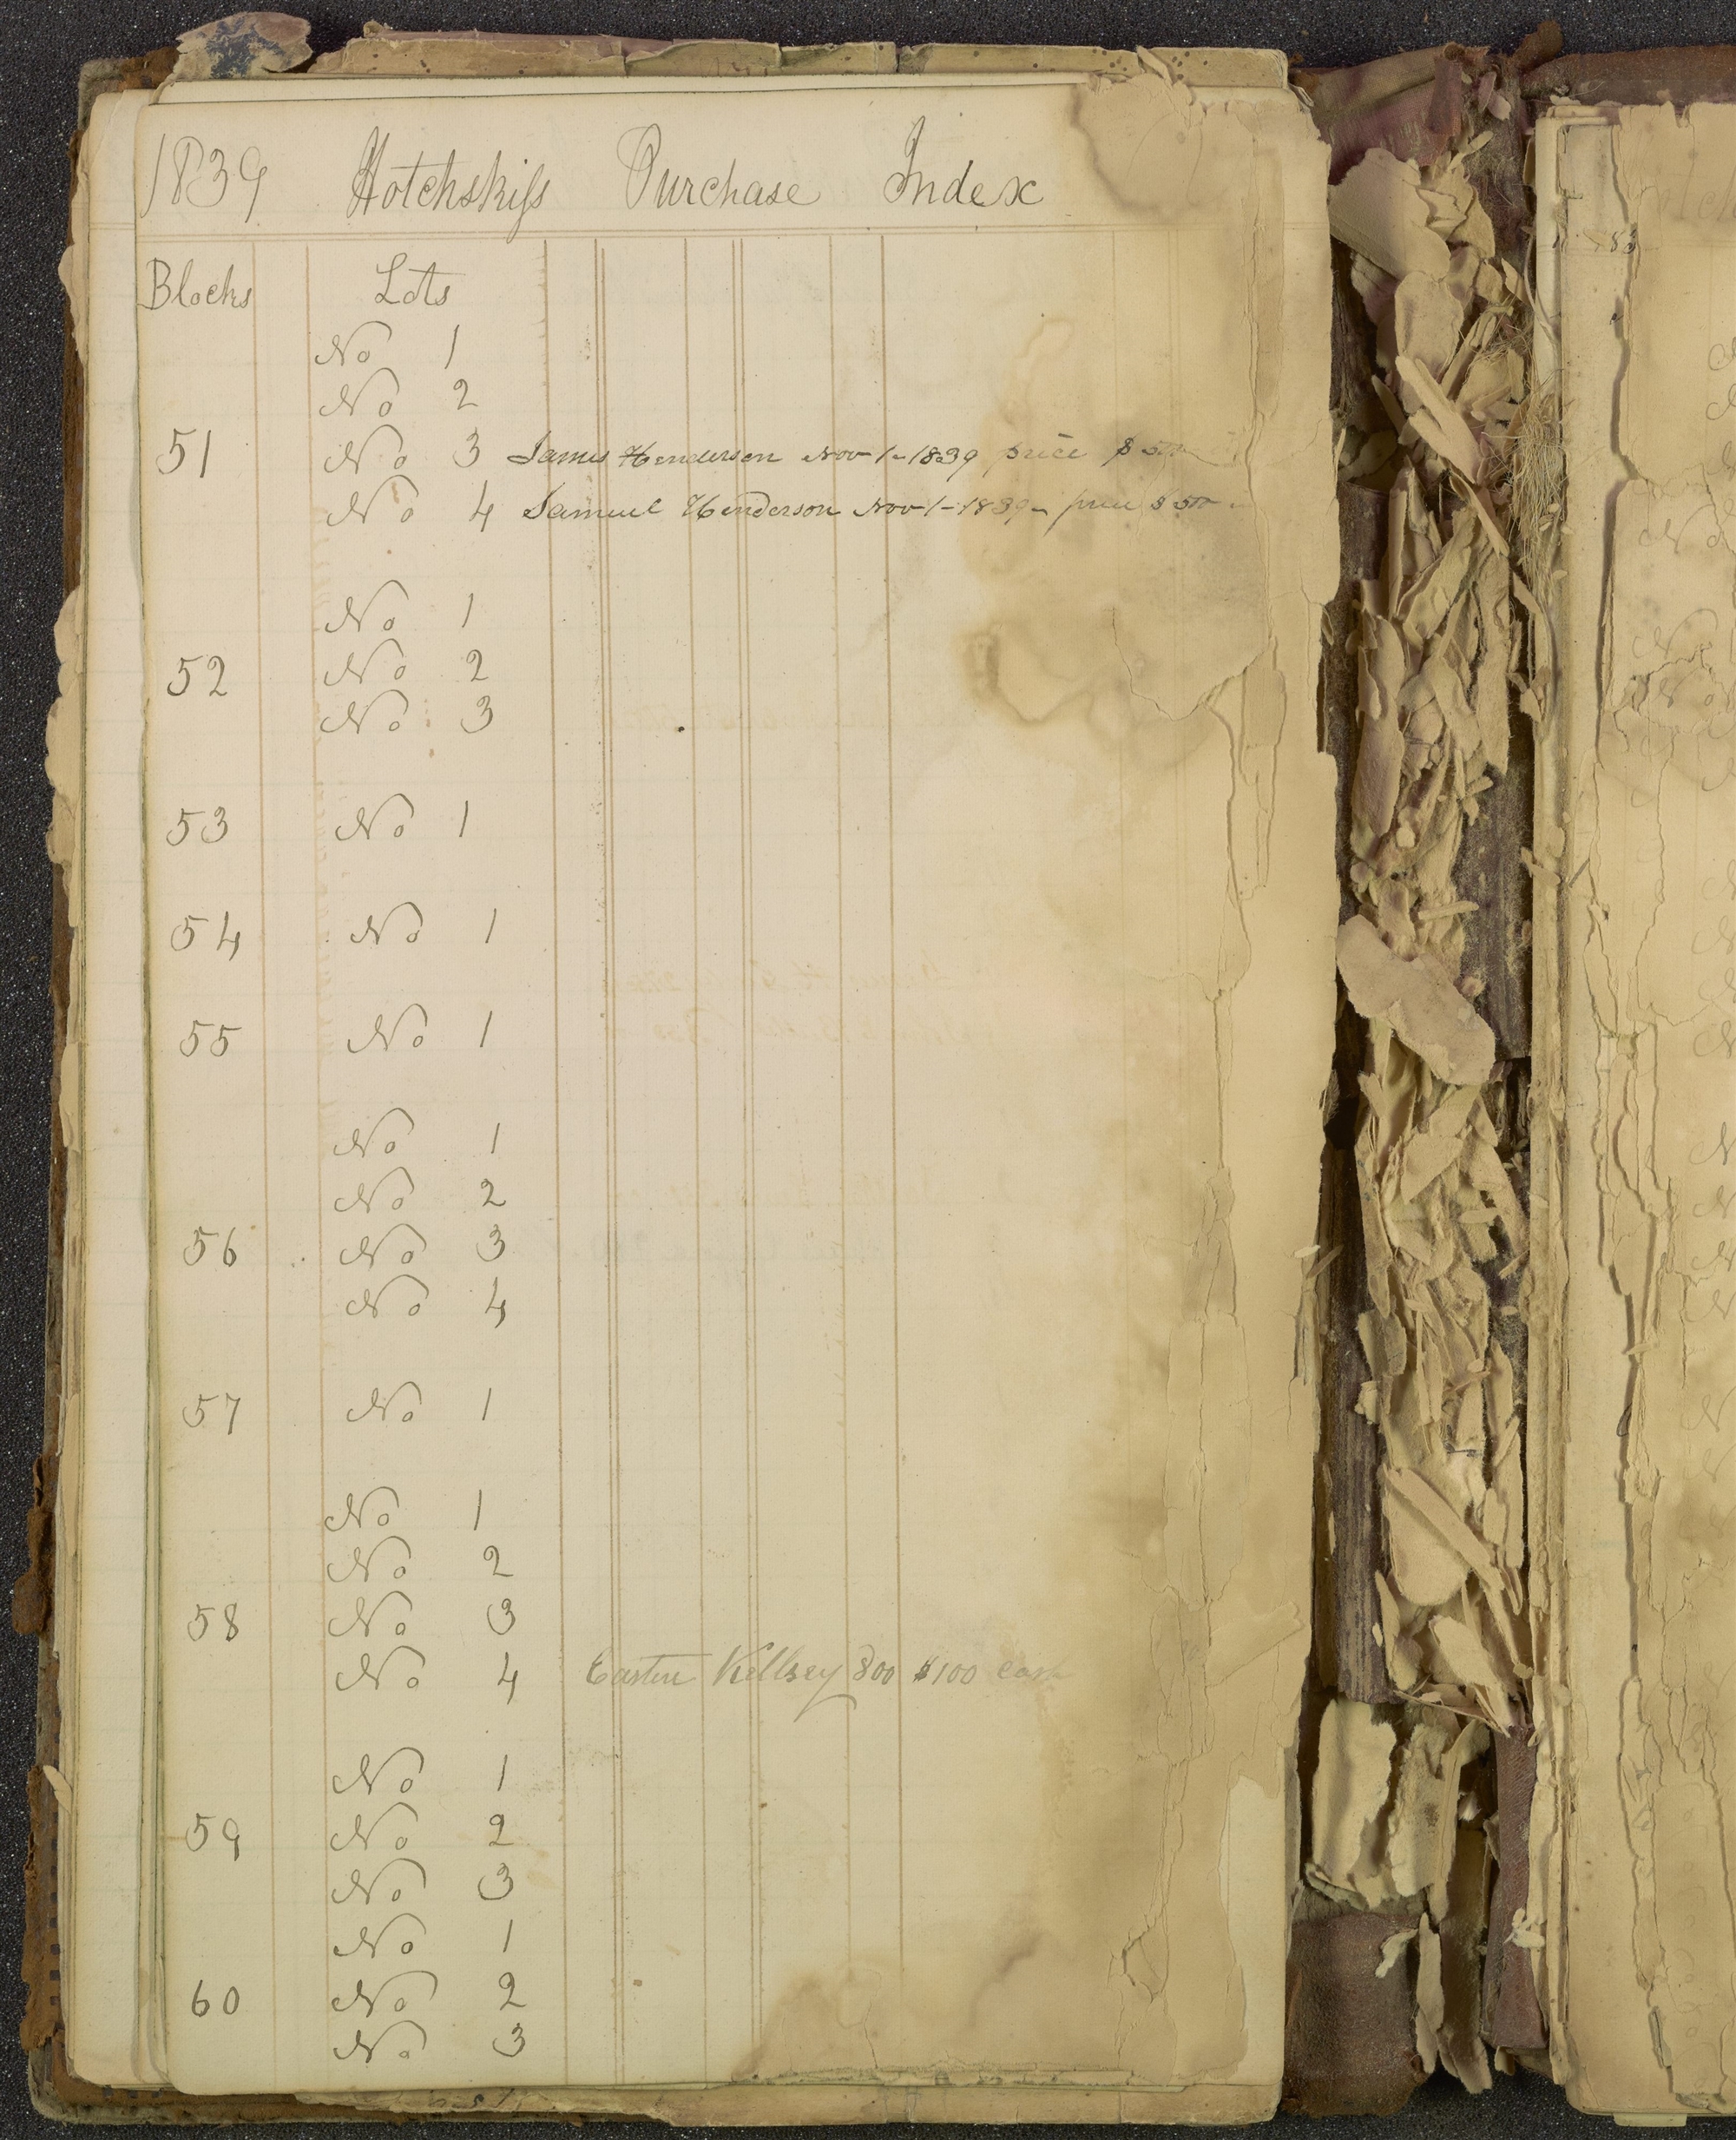 1839 Hotchskiss Purchase Index
Blocks Lots
No 1
No 2
51 No 3 James Henderson Nov 1-1839 price $ 500
No 4 Samuel Henderson Nov 1-1839- price $ 500
No 1
52 No 2
No 3
53 No 1
54 No 1
55 No 1
No 1
No 2
56 No 3
No 4
57 No 1
No 1
No 2
58 No 3
No 4 Kellsey 800 $100 cash
No 1
59 No 2
No 3
No 1
60 No 2
No 3